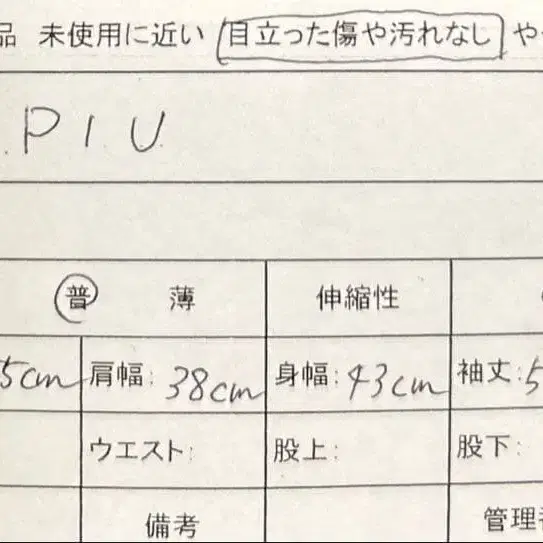 品 未使用に近い 目立った傷や汚れなし や
PIU
普 薄 伸縮性
5cm 肩幅: 38cm 身幅: 43cm 袖丈: 5
ウエスト: 股上: 股下:
備考 管理